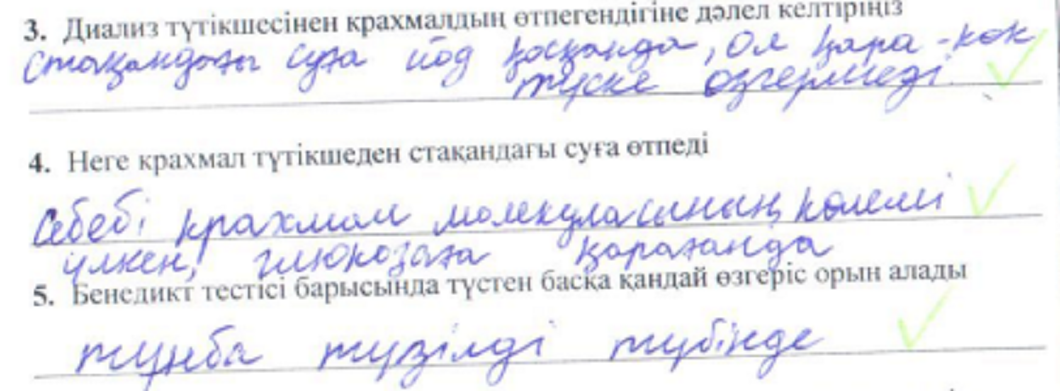 3. Диализ түтікшесінен крахмалдың өтпегендігіне дәлел келтіріңіз
Стақандағы суға йод қосқанда, ол қара-көк
түске өзгермеді.
4. Неге крахмал түтікшеден стақандағы суға өтпеді
Себебі крахмал молекуласының көлемі
үлкен, глюкозаға қарағанда
5. Бенедикт тестісі барысында түстен басқа қандай өзгеріс орын алады
тұнба түзілді түбінде